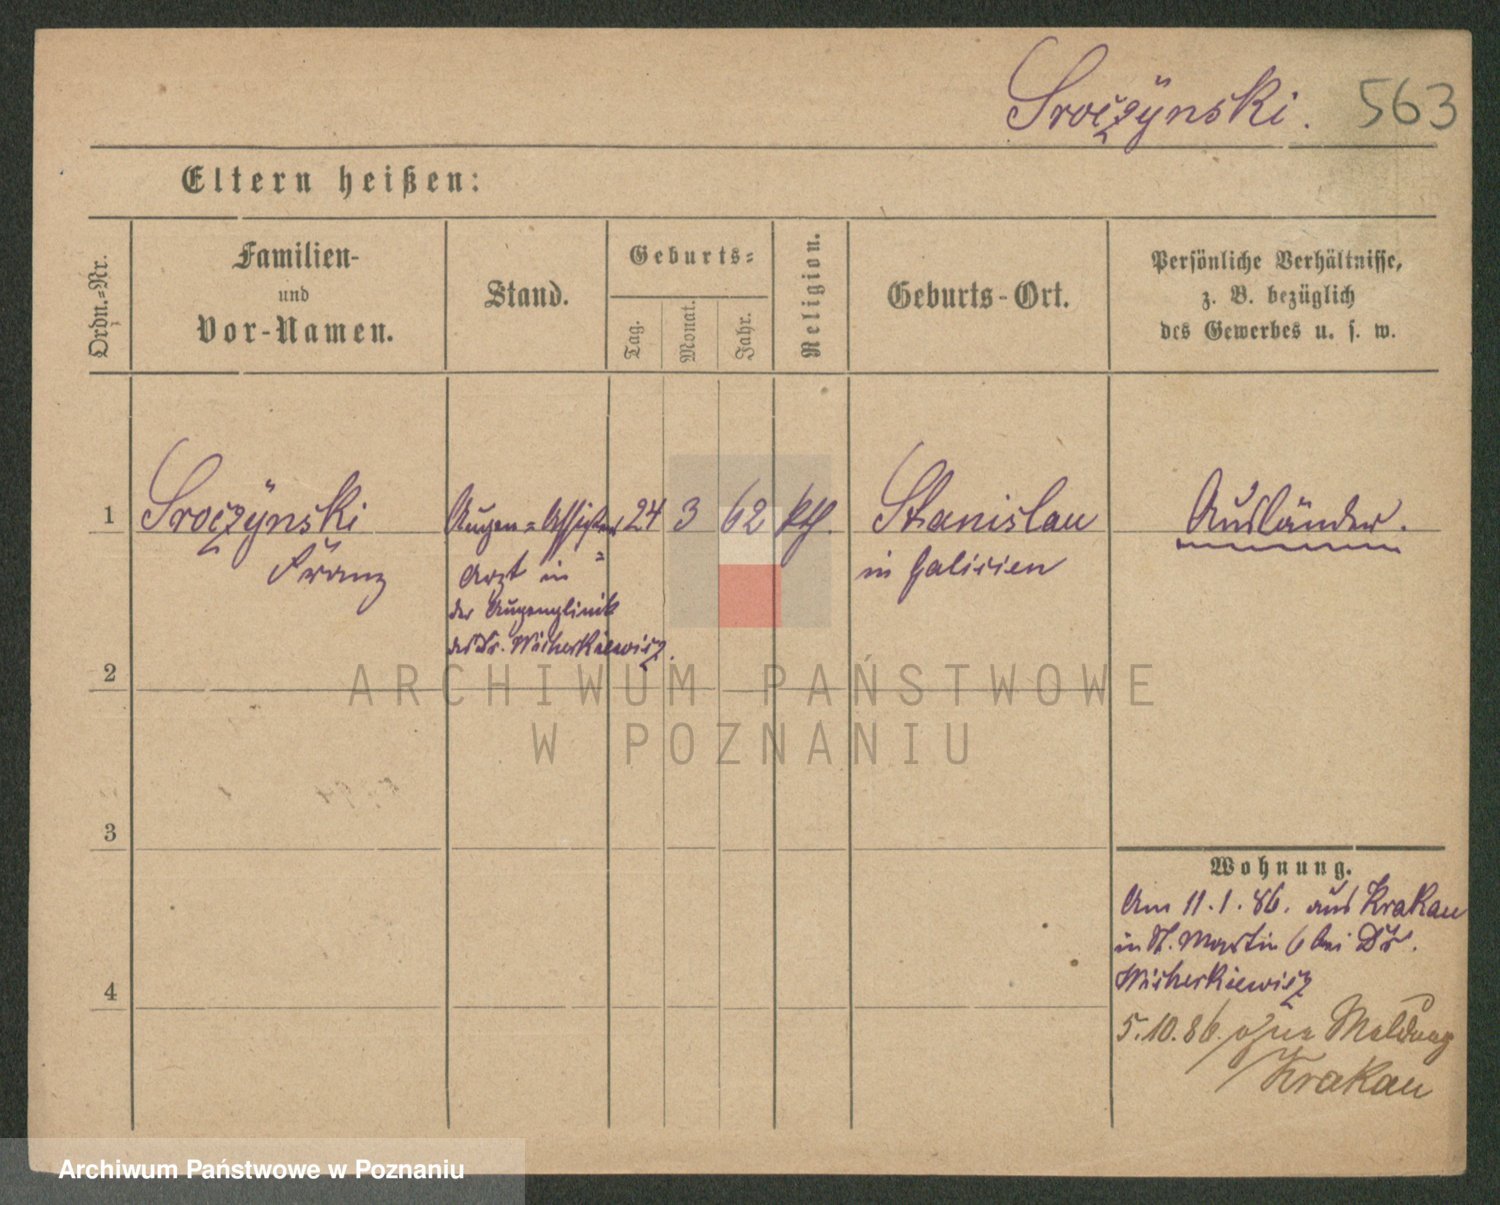 Sroczynski. 563
Eltern heißen:
Ordn.-Nr.
Familien-
und
Vor-Namen.
Stand.
Geburts-
Tag.
Monat.
Jahr.
Religion.
Geburts-Ort.
Persönliche Verhältnisse,
z. B. bezüglich
des Gewerbes u. s. w.
1 Sroczynski
Franz
Augen-Assistenz
Arzt in
der Augenklinik
des Dr. Wicherkiewicz.
24 3 62 kth.
Stanislau
in Galizien
Ausländer.
2
ARCHIWUM PAŃSTWOWE
W POZNANIU
3
4
Wohnung.
Am 11.1.86. aus Krakau
in St. Martin 6 bei Dr.
Wicherkiewicz
5.10.86. ohne Meldung
Krakau
Archiwum Państwowe w Poznaniu